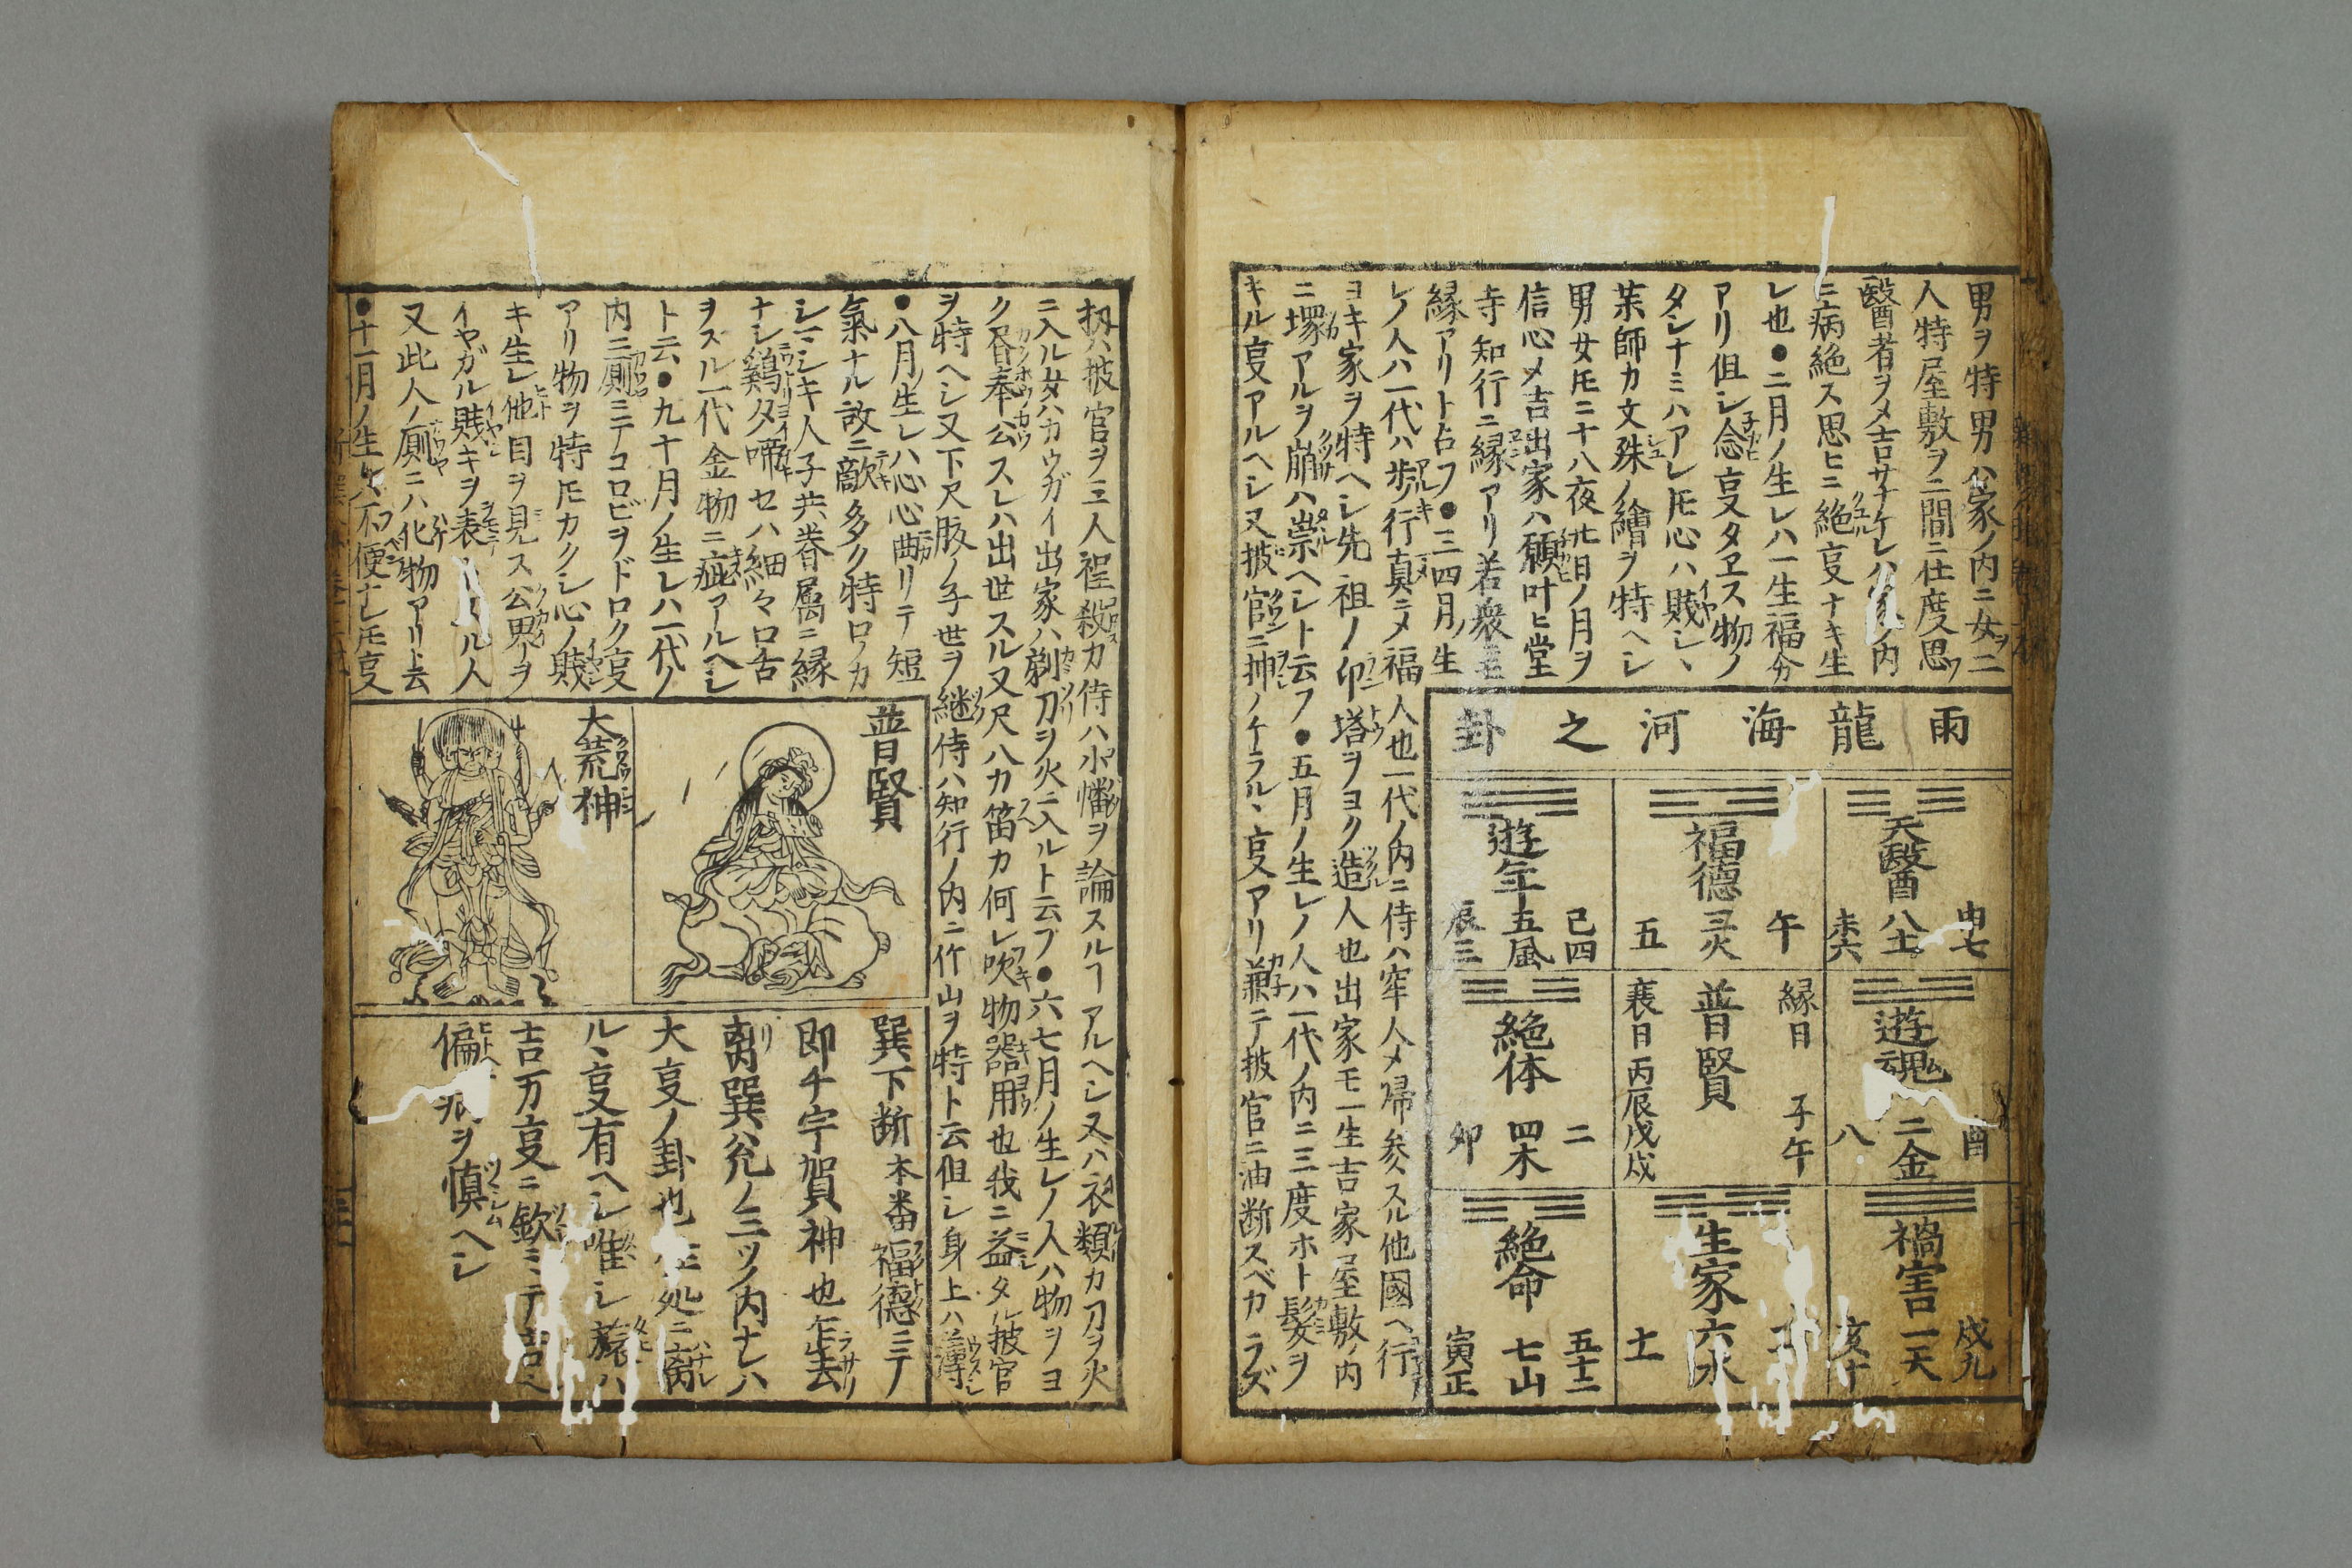 男ヲ特男ハ家ノ内ニ女ヲ二
人特屋敷ヲ二間ニ仕度思フ
醫者ヲメ吉サナケレハ家ノ内
ニ病絶ス思ヒニ絶㕝ナキ生
レ也●二月ノ生レハ一生福分
アリ但シ念㕝タヱス物ノ
タシナミハアレ𪜈心ハ賎シヽ
茱師カ文殊ノ繪ヲ特ヘシ
男女𪜈ニ十八夜廿日ノ月ヲ
信心メ吉出家ハ願叶ヒ堂
寺知行ニ縁アリ若衆ニモ
縁アリト占フ●三四月ノ生
レノ人ハ一代ハ歩行真ニメ福人也一代ノ内ニ侍ハ窂人メ帰参スル他國ヘ行
ヨキ家ヲ特ヘシ先祖ノ印塔ヲヨク造人也出家モ一生吉家屋敷ノ内
ニ塚アルヲ崩ハ祟ヘシト云フ●五月ノ生レノ人ハ一代ノ内ニ三度ホト髪ヲ
キル㕝アルヘシ又披官ニ抻ノケラルヽ㕝アリ兼テ披官ニ油断スベカラズ
雨龍海河之卦
天醫 八土
申七
未六
遊魂 二金
酉
八
禍害 一天
戌九
亥十
福德
午
五
縁日 子午
普賢
衰日 丙辰戊戌
生家 六水
十一
遊年 五風
巳四
辰三
絶体 四木
二
卯
絶命 七山
寅正
扨ハ披官ヲ三人程殺カ侍ハ小幡ヲ論スルヿアルヘシ又ハ衣類カ刀ヲ火
ニ入ル女ハカウガイ出家ハ剃刀ヲ火ニ入ルト云フ●六七月ノ生レノ人ハ物ヲヨ
ク呑奉公スレハ出世スル又尺八カ笛カ何レ吹物器用也我ニ益タル披官
ヲ特ヘシ又下尺腹ノ子世ヲ継侍ハ知行ノ内ニ竹山ヲ特ト云但シ身上ハ薄
●八月ノ生レハ心心曲リテ短
氣ナル故ニ敵多ク特ロカ
シマシキ人子共眷属ニ縁
ナシ鷄夕啼セハ細々口舌
ヲスル一代金物ニ疵アルヘシ
ト云●九十月ノ生レハ一代ノ
内ニ厠ニテコロビヲドロク㕝
アリ物ヲ特𪜈カクシ心ノ賎
キ生レ他目ヲ見ス公界ヲ
イヤガル賎キヲ表
ル人
又此人ノ厠ニハ化物アリト云
●十一月ノ生レハ不便ナレ𪜈㕝
普賢
大荒神
巽下断 本番福德ニテ
即チ宇賀神也乍去
离巽兊ノ三ツノ内ナレハ
大㕝ノ卦也
処ニ离
ルヽ㕝有ヘシ唯シ
ハ
吉万㕝ニ欽ミテ吉ヘ
偏
ヲ慎ヘシ